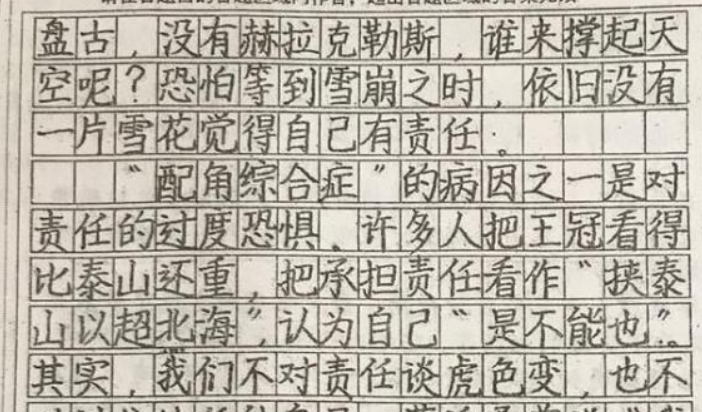 盘古，没有赫拉克勒斯，谁来撑起天
空呢？恐怕等到雪崩之时，依旧没有
一片雪花觉得自己有责任。
“配角综合症”的病因之一是对
责任的过度恐惧，许多人把王冠看得
比泰山还重，把承担责任看作“挟泰
山以超北海”，认为自己“是不能也”。
其实，我们不对责任谈虎色变，也不